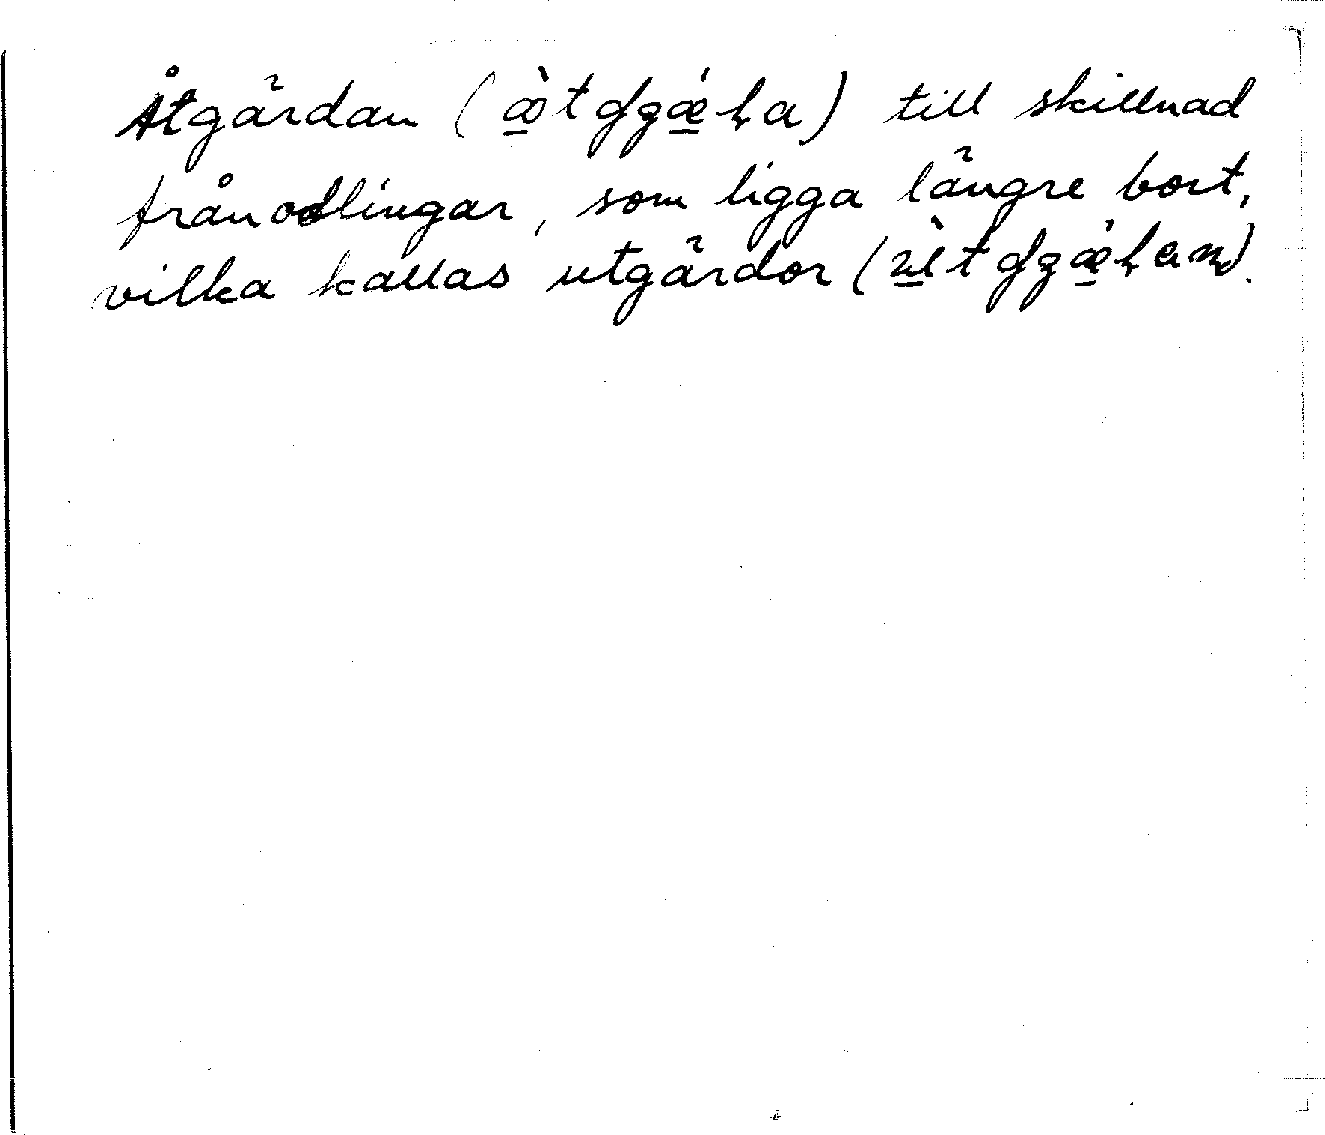 Åtgärdan (æ̠̀tɠgǽ̠ꞕa) till skillnad
från odlingar, som ligga längre bort,
vilka kallas utgärdor (